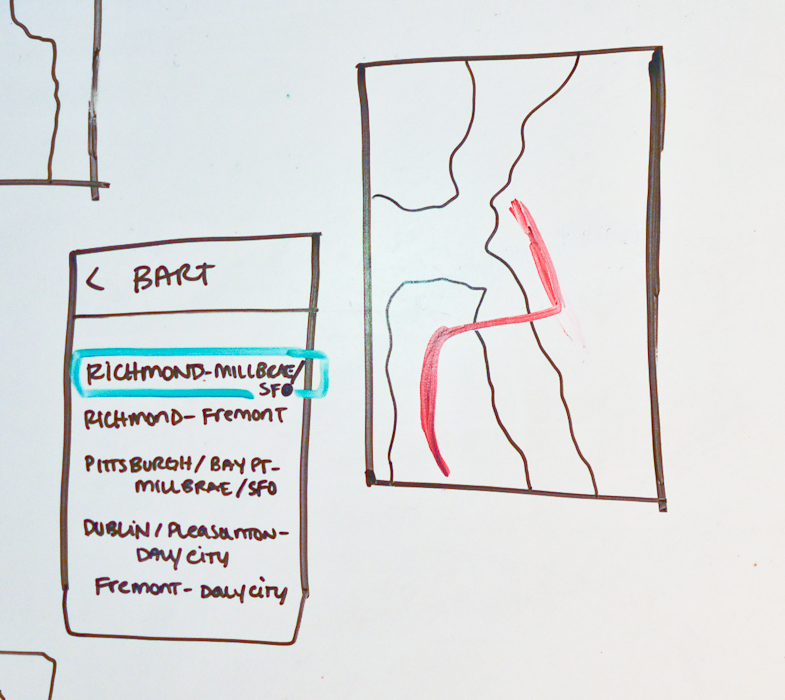 < BART
RICHMOND-MILLBRAE/
SFO
RICHMOND-FremonT
PITTSBURGH/BAY PT-
MILLBRAE/SFO
DUBLIN/PLeasanTON-
DALY CITY
FremonT-DALY CITY